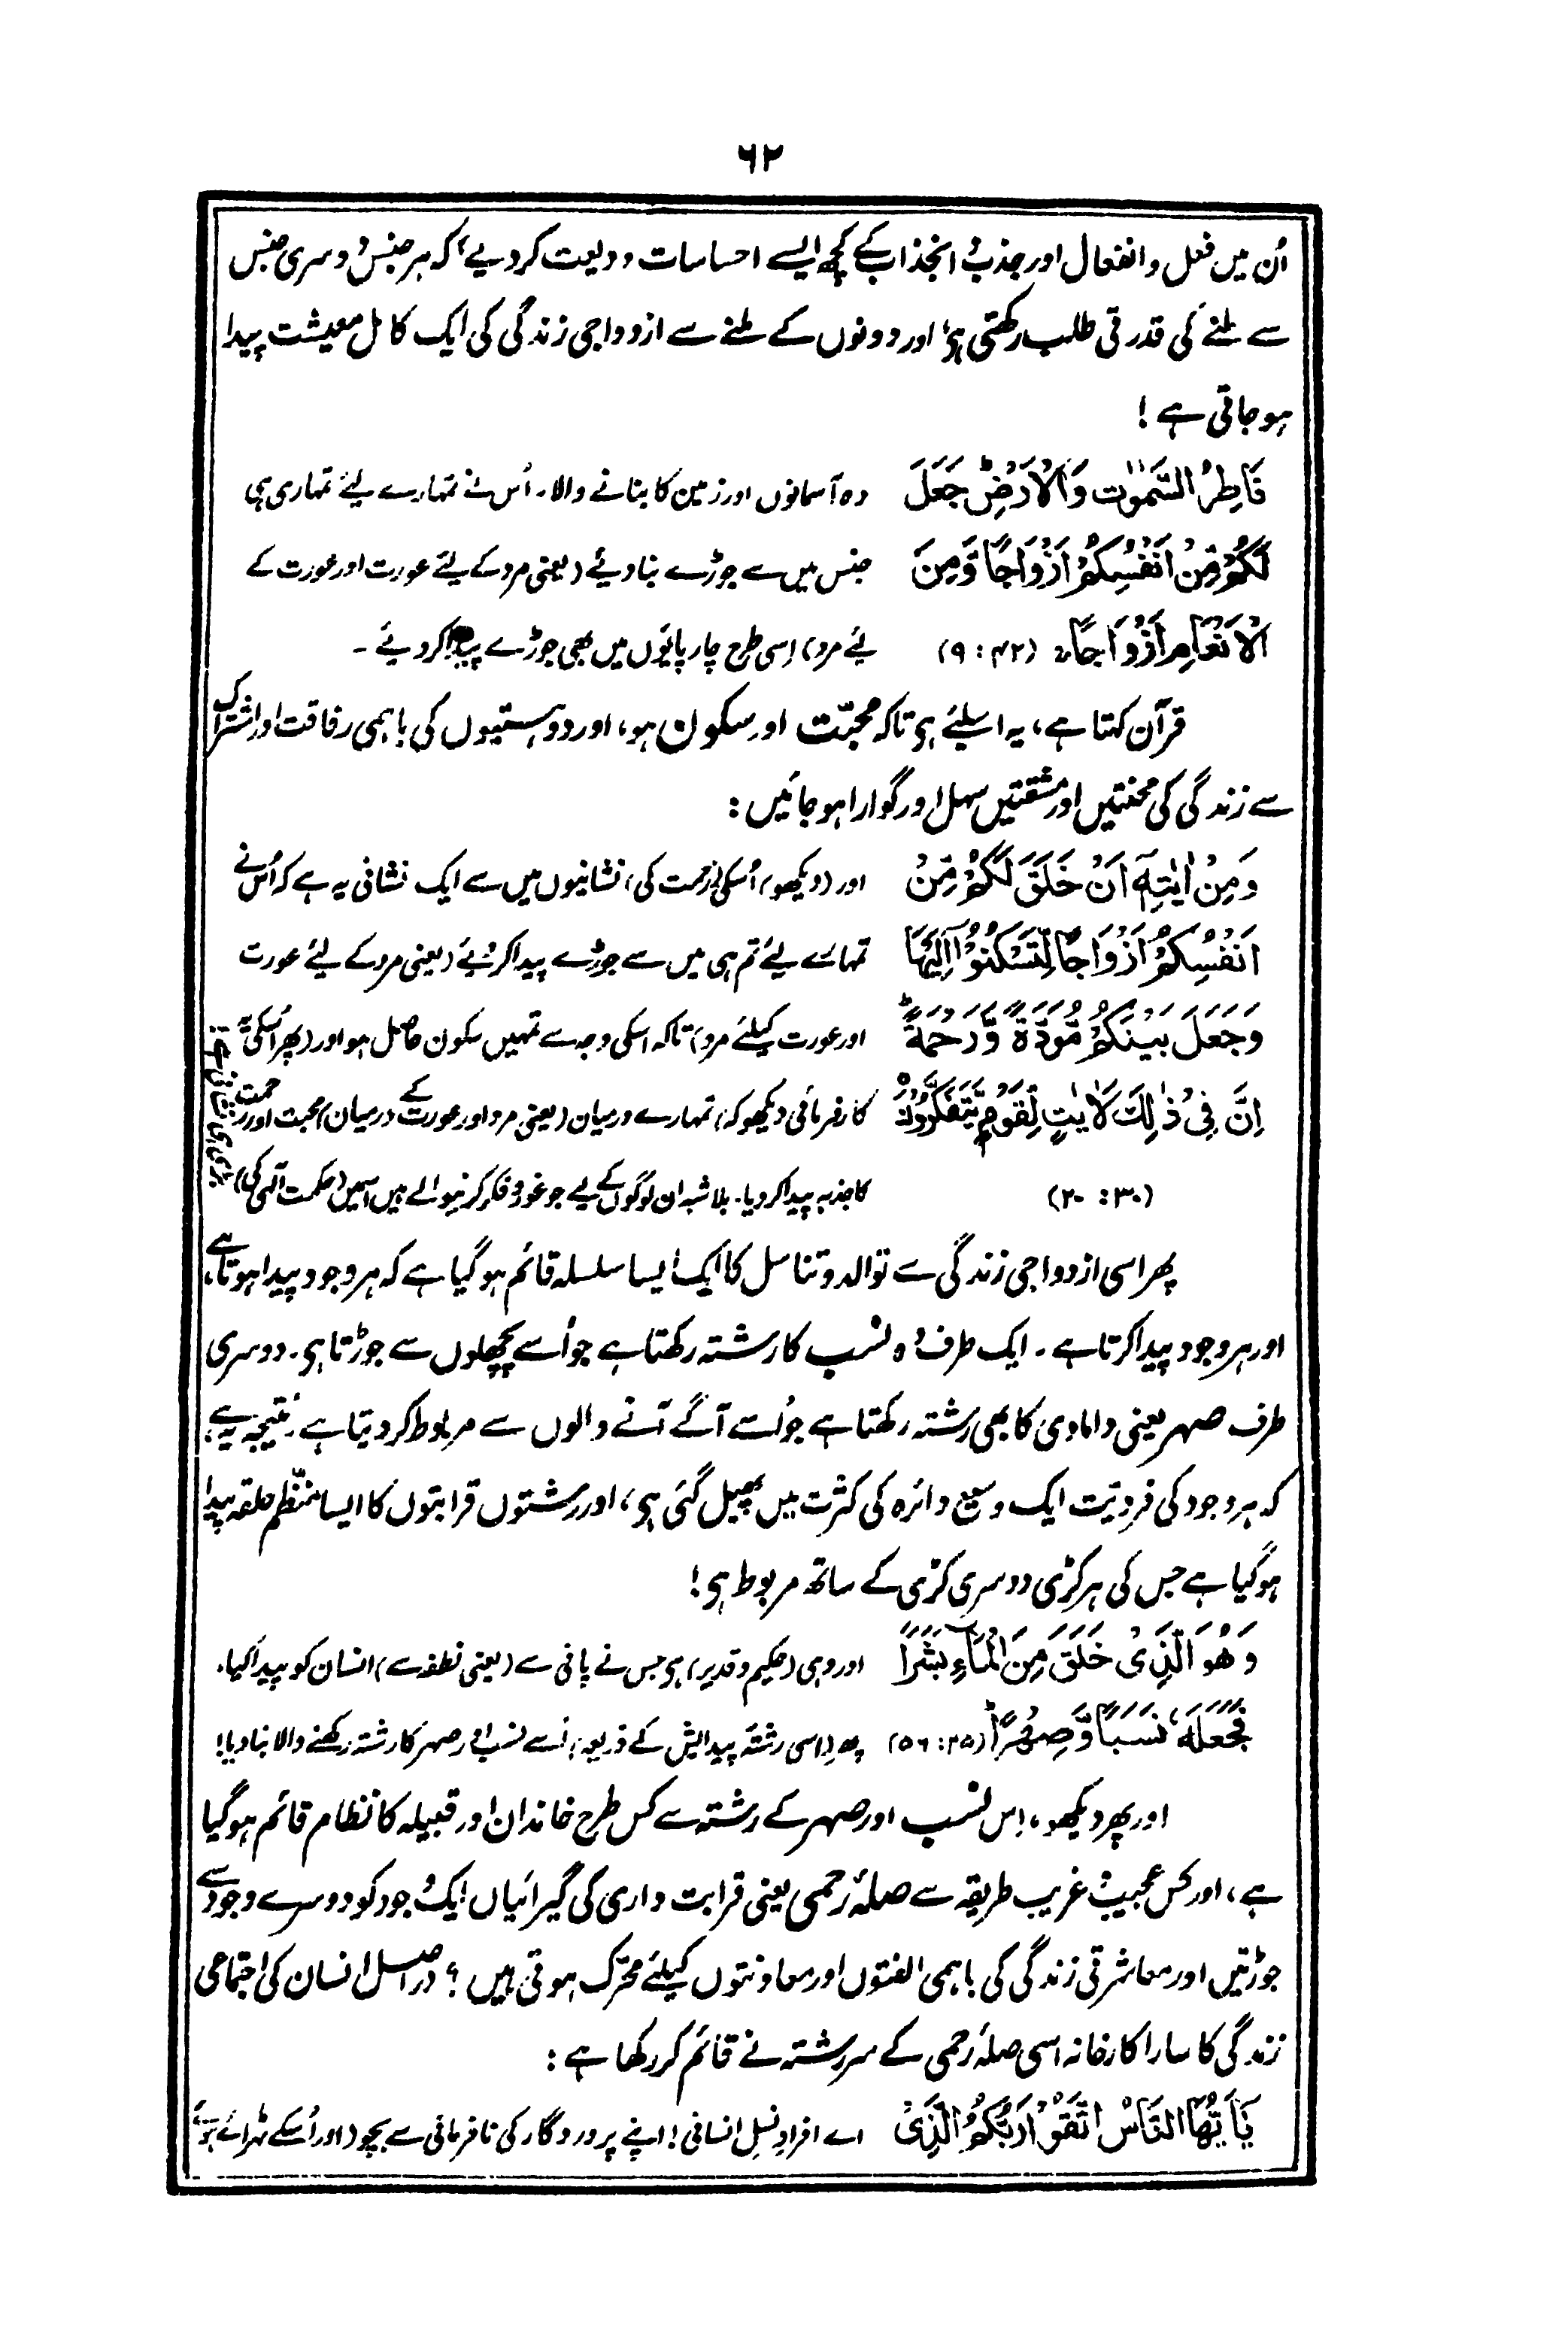 ۶۲
اُن میں فعل و انفعال اور جذب و انجذاب کے کچھ ایسے احساسات ودیعت کردیے، کہ ہر جنس دوسری جنس
سے ملنے کی قدرتی طلب رکھتی ہی، اور دونوں کے ملنے سے ازدواجی زندگی کی ایک کامل معیشت پیدا
ہوجاتی ہے !
فَاطِرُ السَّمٰوٰتِ وَالْاَرْضِ جَعَلَ وہ آسمانوں اور زمین کا بنانے والا۔ اُس نے تمہارے لیے تمہاری ہی
لَكُمْ مِّنْ اَنْفُسِكُمْ اَزْوَاجًا وَّمِنَ جنس میں سے جوڑے بنادیئے (یعنی مرد کے لیے عورت اور عورت کے
الْاَنْعَامِ اَزْوَاجًا، (۴۲ : ۹) لیے مرد) اِسی طرح چارپایوں میں بھی جوڑے پیدا کردیئے۔
قرآن کہتا ہے، یہ اسلیئے ہی تاکہ محبّت اور سکون ہو، اور دو ہستیوں کی باہمی رفاقت اور اشتراک
سے زندگی کی محنتیں اور مشقتیں سہل اور گوارا ہوجائیں :
وَمِنْ اٰيٰتِهٖۤ اَنْ خَلَقَ لَكُمْ مِّنْ اور (دیکھو) اُسکی (رحمت کی) نشانیوں میں سے ایک نشانی یہ ہے کہ اُس نے
اَنْفُسِكُمْ اَزْوَاجًا لِّتَسْكُنُوْۤا اِلَيْهَا تمہارے لیے تم ہی میں سے جوڑے پیدا کردیئے (یعنی مرد کے لیے عورت
وَجَعَلَ بَيْنَكُمْ مَّوَدَّةً وَّرَحْمَةً ؕ اور عورت کیلئے مرد) تاکہ اسکی وجہ سے تمہیں سکون حاصل ہو اور (پھر اُسکی یہ
اِنَّ فِيْ ذٰلِكَ لَاٰيٰتٍ لِّقَوْمٍ يَّتَفَكَّرُوْنَ کارفرمائی دیکھو کہ) تمہارے درمیان (یعنی مرد اور عورت کے درمیان) محبت اور رحمت
(۳۰ : ۲۰) کا جذبہ پیدا کردیا۔ بلاشبہ ان لوگوں کے لیے جو غور و فکر کرنیوالے ہیں اسمیں (حکمت الٰہی کی)
پھر اسی ازدواجی زندگی سے توالد و تناسل کا ایک ایسا سلسلہ قائم ہوگیا ہے کہ ہر وجود پیدا ہوتا ہے،
اور ہر وجود پیدا کرتا ہے۔ ایک طرف وہ نسب کا رشتہ رکھتا ہے جو اُسے پچھلوں سے جوڑتا ہی۔ دوسری
طرف صہر یعنی دامادی کا بھی رشتہ رکھتا ہے جو اُسے آگے آنے والوں سے مربوط کردیتا ہے۔ نتیجہ یہ ہے،
کہ ہر وجود کی فردیّت ایک وسیع دائرہ کی کثرت میں پھیل گئی ہی، اور رشتوں قرابتوں کا ایسا منظّم حلقہ پیدا
ہوگیا ہے جس کی ہر کڑی دوسری کڑی کے ساتھ مربوط ہی!
وَهُوَ الَّذِيْ خَلَقَ مِنَ الْمَآءِ بَشَرًا اور وہی (حکیم و قدیر) ہی جس نے پانی سے (یعنی نطفہ سے) انسان کو پیدا کیا۔
فَجَعَلَهٗ نَسَبًا وَّصِهْرًا ؕ (۲۵ : ۵۶) پھر (اسی رشتۂ پیدایش کے ذریعہ) اُسے نسب اور صہر کا رشتہ رکھنے والا بنا دیا!
اور پھر دیکھو، اِس نسب اور صہر کے رشتہ سے کس طرح خاندان اور قبیلہ کا نظام قائم ہوگیا
ہے، اور کس عجیب و غریب طریقہ سے صلۂ رحمی یعنی قرابت داری کی گیرائیاں ایک وجود کو دوسرے وجود سے
جوڑتیں اور معاشرتی زندگی کی باہمی الفتوں اور معاونتوں کیلئے محرّک ہوتی ہیں ؟ دراصل انسان کی اجتماعی
زندگی کا سارا کارخانہ اسی صلۂ رحمی کے سررشتہ نے قائم کر رکھا ہے :
يٰۤاَيُّهَا النَّاسُ اتَّقُوْا رَبَّكُمُ الَّذِيْ اے افرادِ نسلِ انسانی! اپنے پروردگار کی نافرمانی سے بچو (اور اُسکے ٹہرائے ہوئے